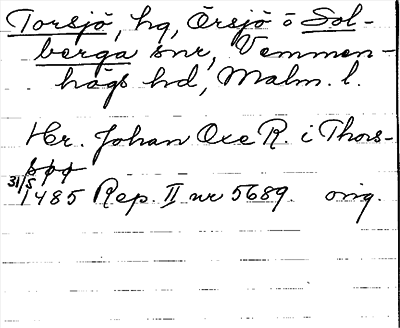 Torsjö, hg, Örsjö o Sol-
berga snr, Vemmen-
högs hd, Malm. l.
Hr. Johan Oxe R. i Thors-
31/5 1485 Rep. II nr 5689. orig.